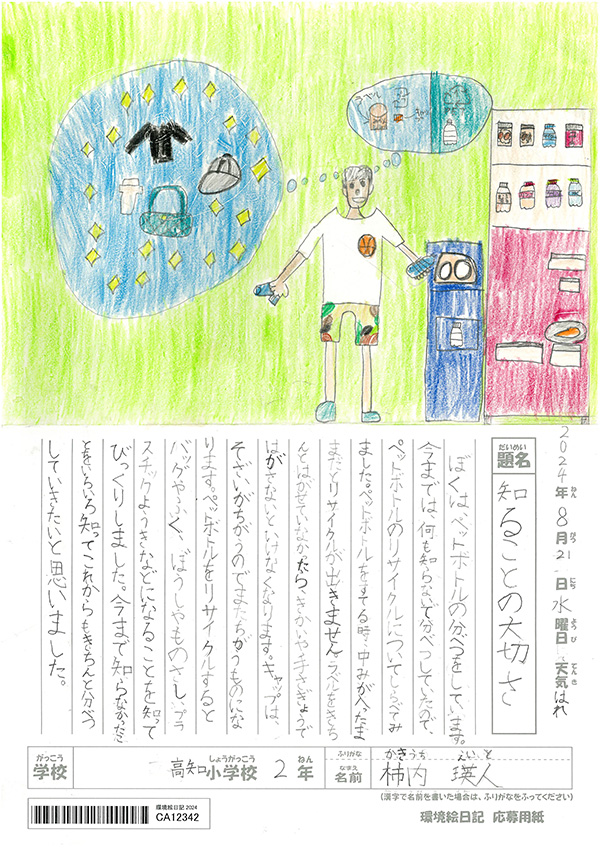 ラベル
2024年8月21日水曜日 天気はれ
ねん がつ にち ようび てんき
だいめい
題名 知ることの大切さ
ぼくは、ペットボトルの分べつをしています。
今までは、何も知らないで分べつしていたので、
ペットボトルのリサイクルについてしらべてみ
ました。ペットボトルをすてる時、中みが入ったま
まだとリサイクルが出きません。ラベルをきち
んとはがせていなかったら、きかいや手さぎょうで
はがさないといけなくなります。キャップは、
そざいがちがうのでまたちがうものにな
ります。ペットボトルをリサイクルすると
バッグやふく、ぼうしやものさし、プラ
スチックようきなどになることを知って
びっくりしました。今まで知らなかったこ
とをいろいろ知ってこれからもきちんと分べつ
していきたいと思いました。
がっこう しょうがっこう ねん ふりがな かきうち えいと
学校 高知小学校 2年 なまえ 名前 柿内 瑛人
(漢字で名前を書いた場合は、ふりがなをふってください)
環境絵日記 2024
CA12342
環境絵日記 応募用紙